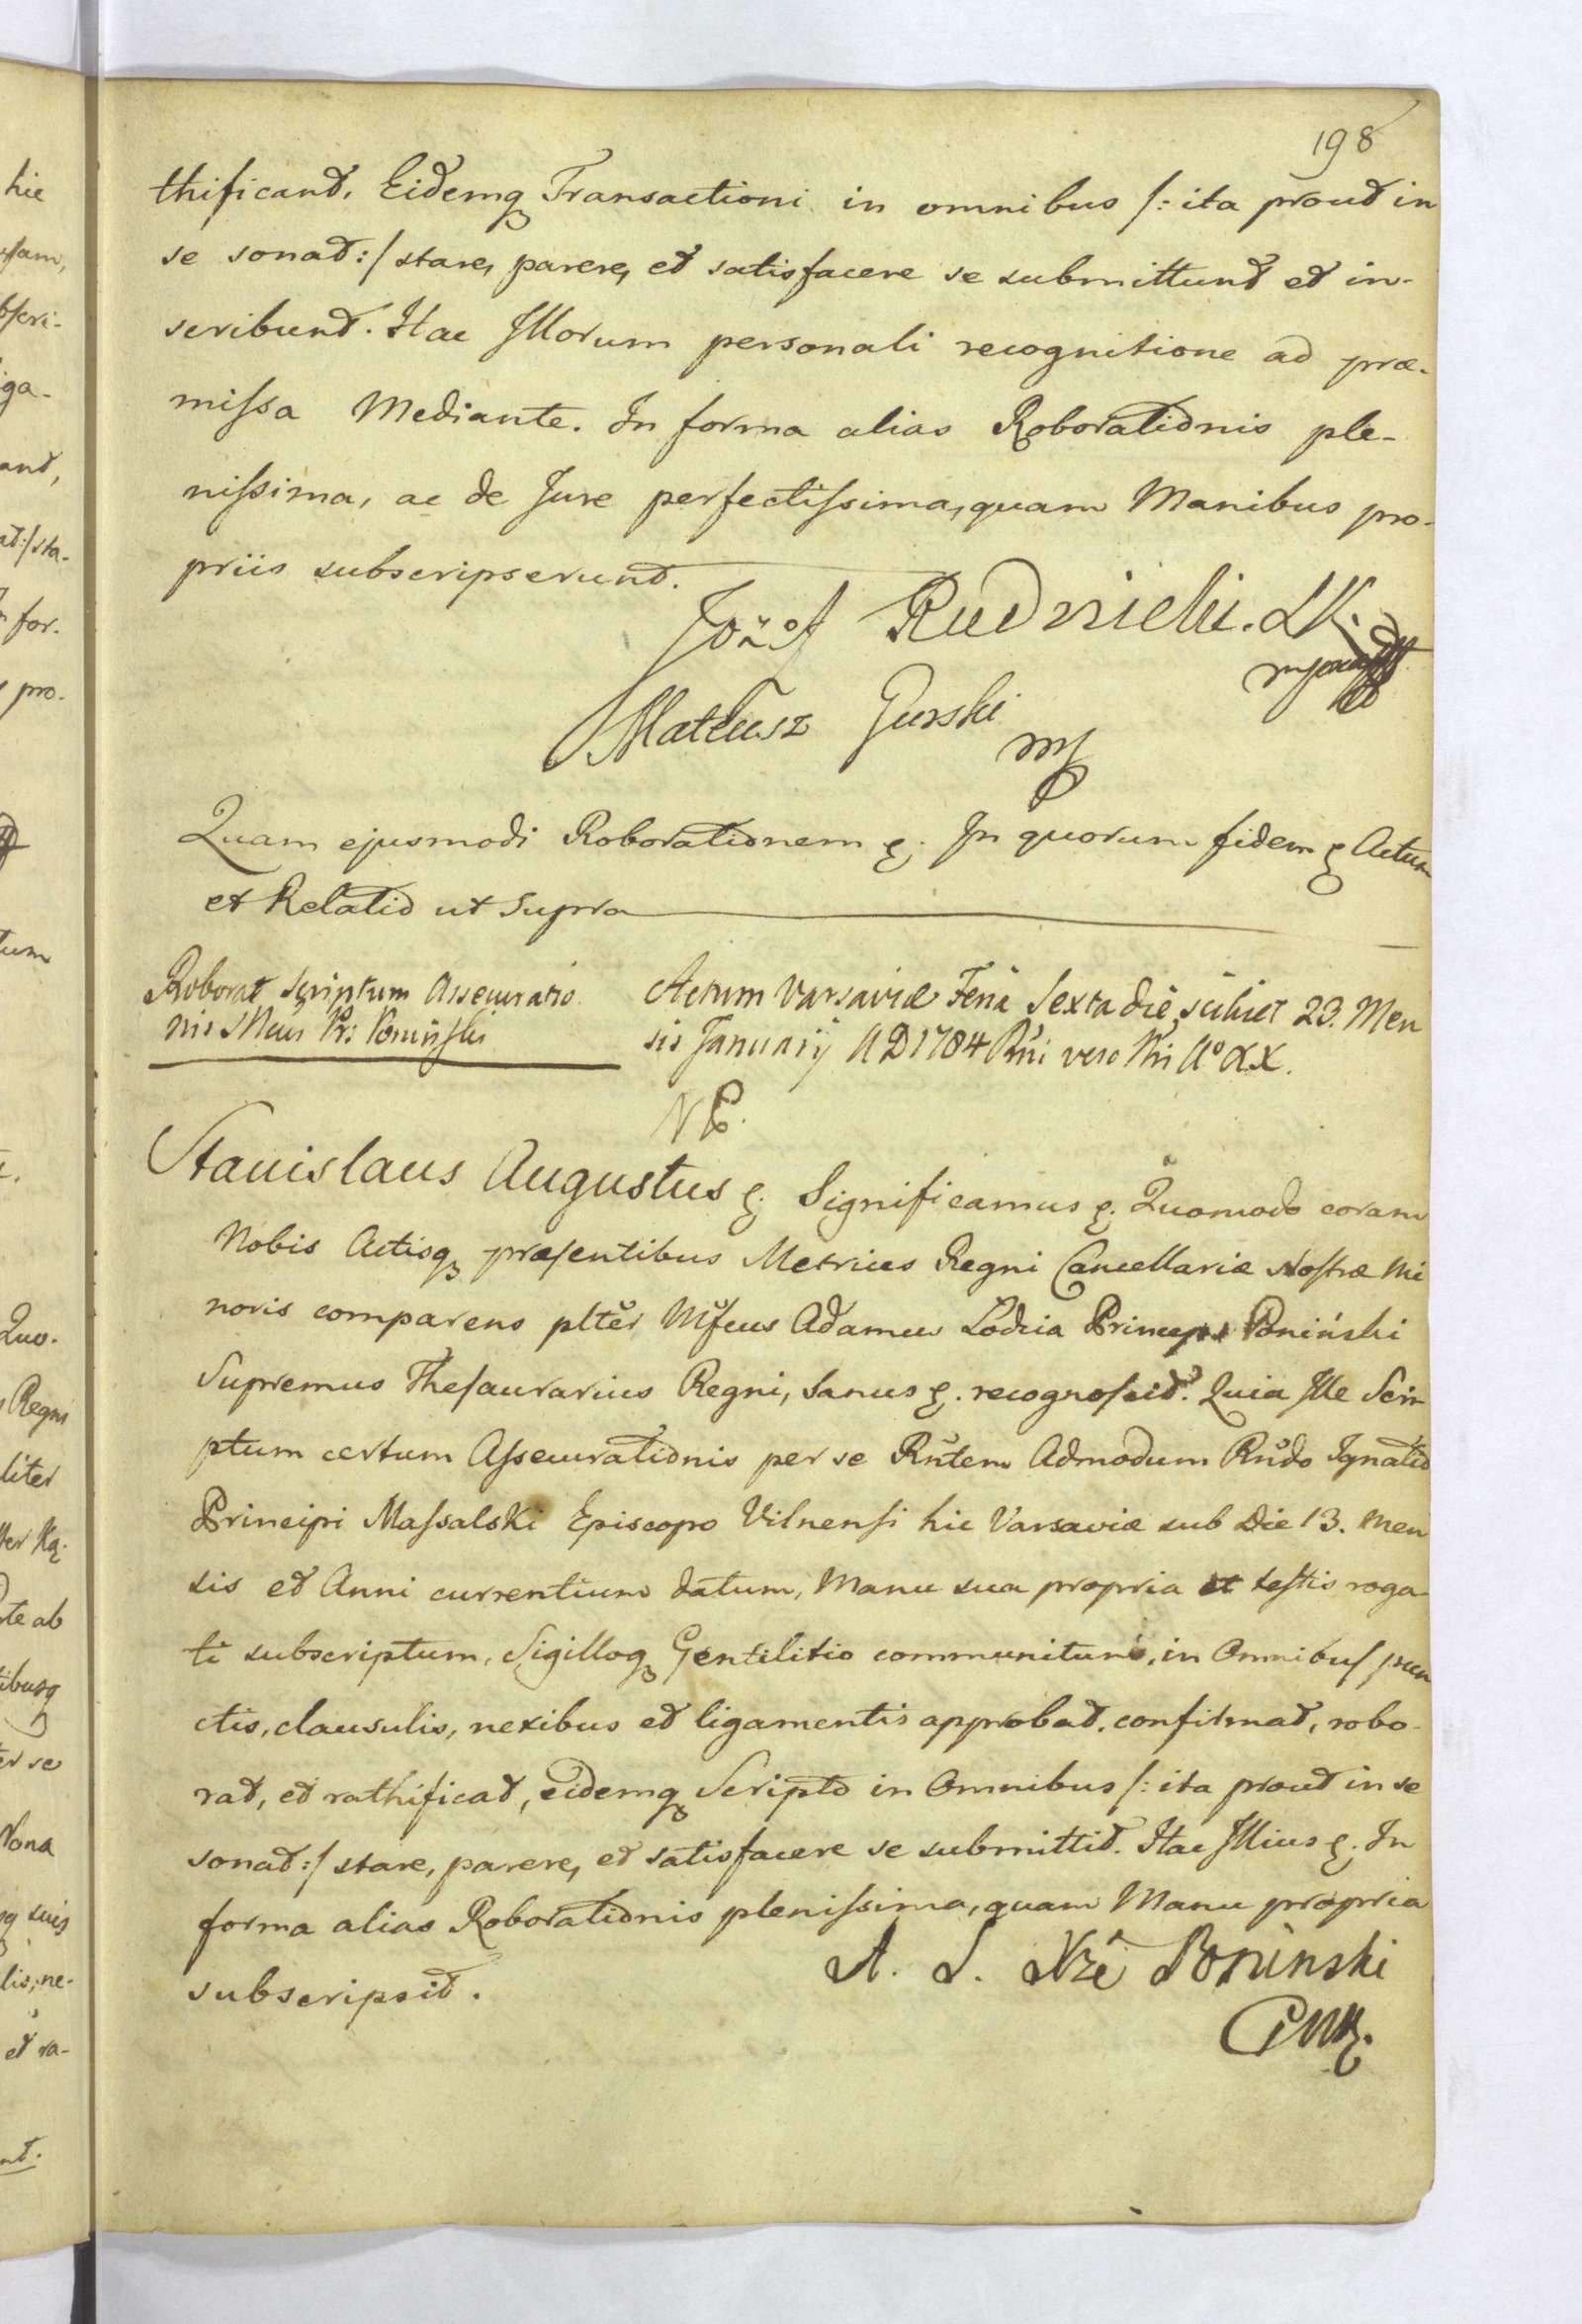 198
thificant. Eidemq3 Transactioni in omnibus /: ita prout in
se sonat :/ stare, parere, et satisfacere se submittunt et in-
scribunt. Hac Illorum personali recognitione ad præ-
missa Mediante. In forma alias Roborationis ple-
nissima, ac de Jure perfectissima, quam Manibus pro-
priis subscripserunt.
Józef Rudnicki. LK.
Mateusz Gurski
mp
Quam ejusmodi Roborationem &. In quorum fidem & Actum
et Relatio ut Supra
Roborat Scriptum Assecuratio
nis Pr: Poniński
Actum Varsaviæ Feria Sexta die scilicet 23. Men
sis Januarij AD 1784 Rni vero Nri Aº XX.
Stanislaus Augustus &. Significamus &. Quomodo coram
Nobis Actisq3 præsentibus Metrices Regni Cancellariæ Nostræ Mi
noris comparens plter Adamus Łodzia Princeps Poniński
Supremus Thesaurarius Regni, Sanus &. recognoscit. Quia Ille Scri
ptum certum Assecurationis per se Rntem Admodum Rndo Ignatio
Principi Massalski Episcopo Vilnensi hic Varsaviæ sub Die 13. Men
sis et Anni currentium datum, Manu sua propria et testis roga-
ti subscriptum, Sigilloq3 Gentilitio communitum, in Omnibus pun
ctis, clausulis, nexibus et ligamentis approbat, confirmat, robo-
rat, et rathificat, eidemq3 Scripto in Omnibus /: ita prout in se
sonat :/ stare, parere, et satisfacere se submittit. Hac Illius &. In
forma alias Roborationis plenissima, quam Manu propria
subscripsit.
A. Ł. Xże Poninski
hic
ant,
for.
pro.
Quo.
Regni
liter
te ab
Nona
suis
lis, ne-
et ra-